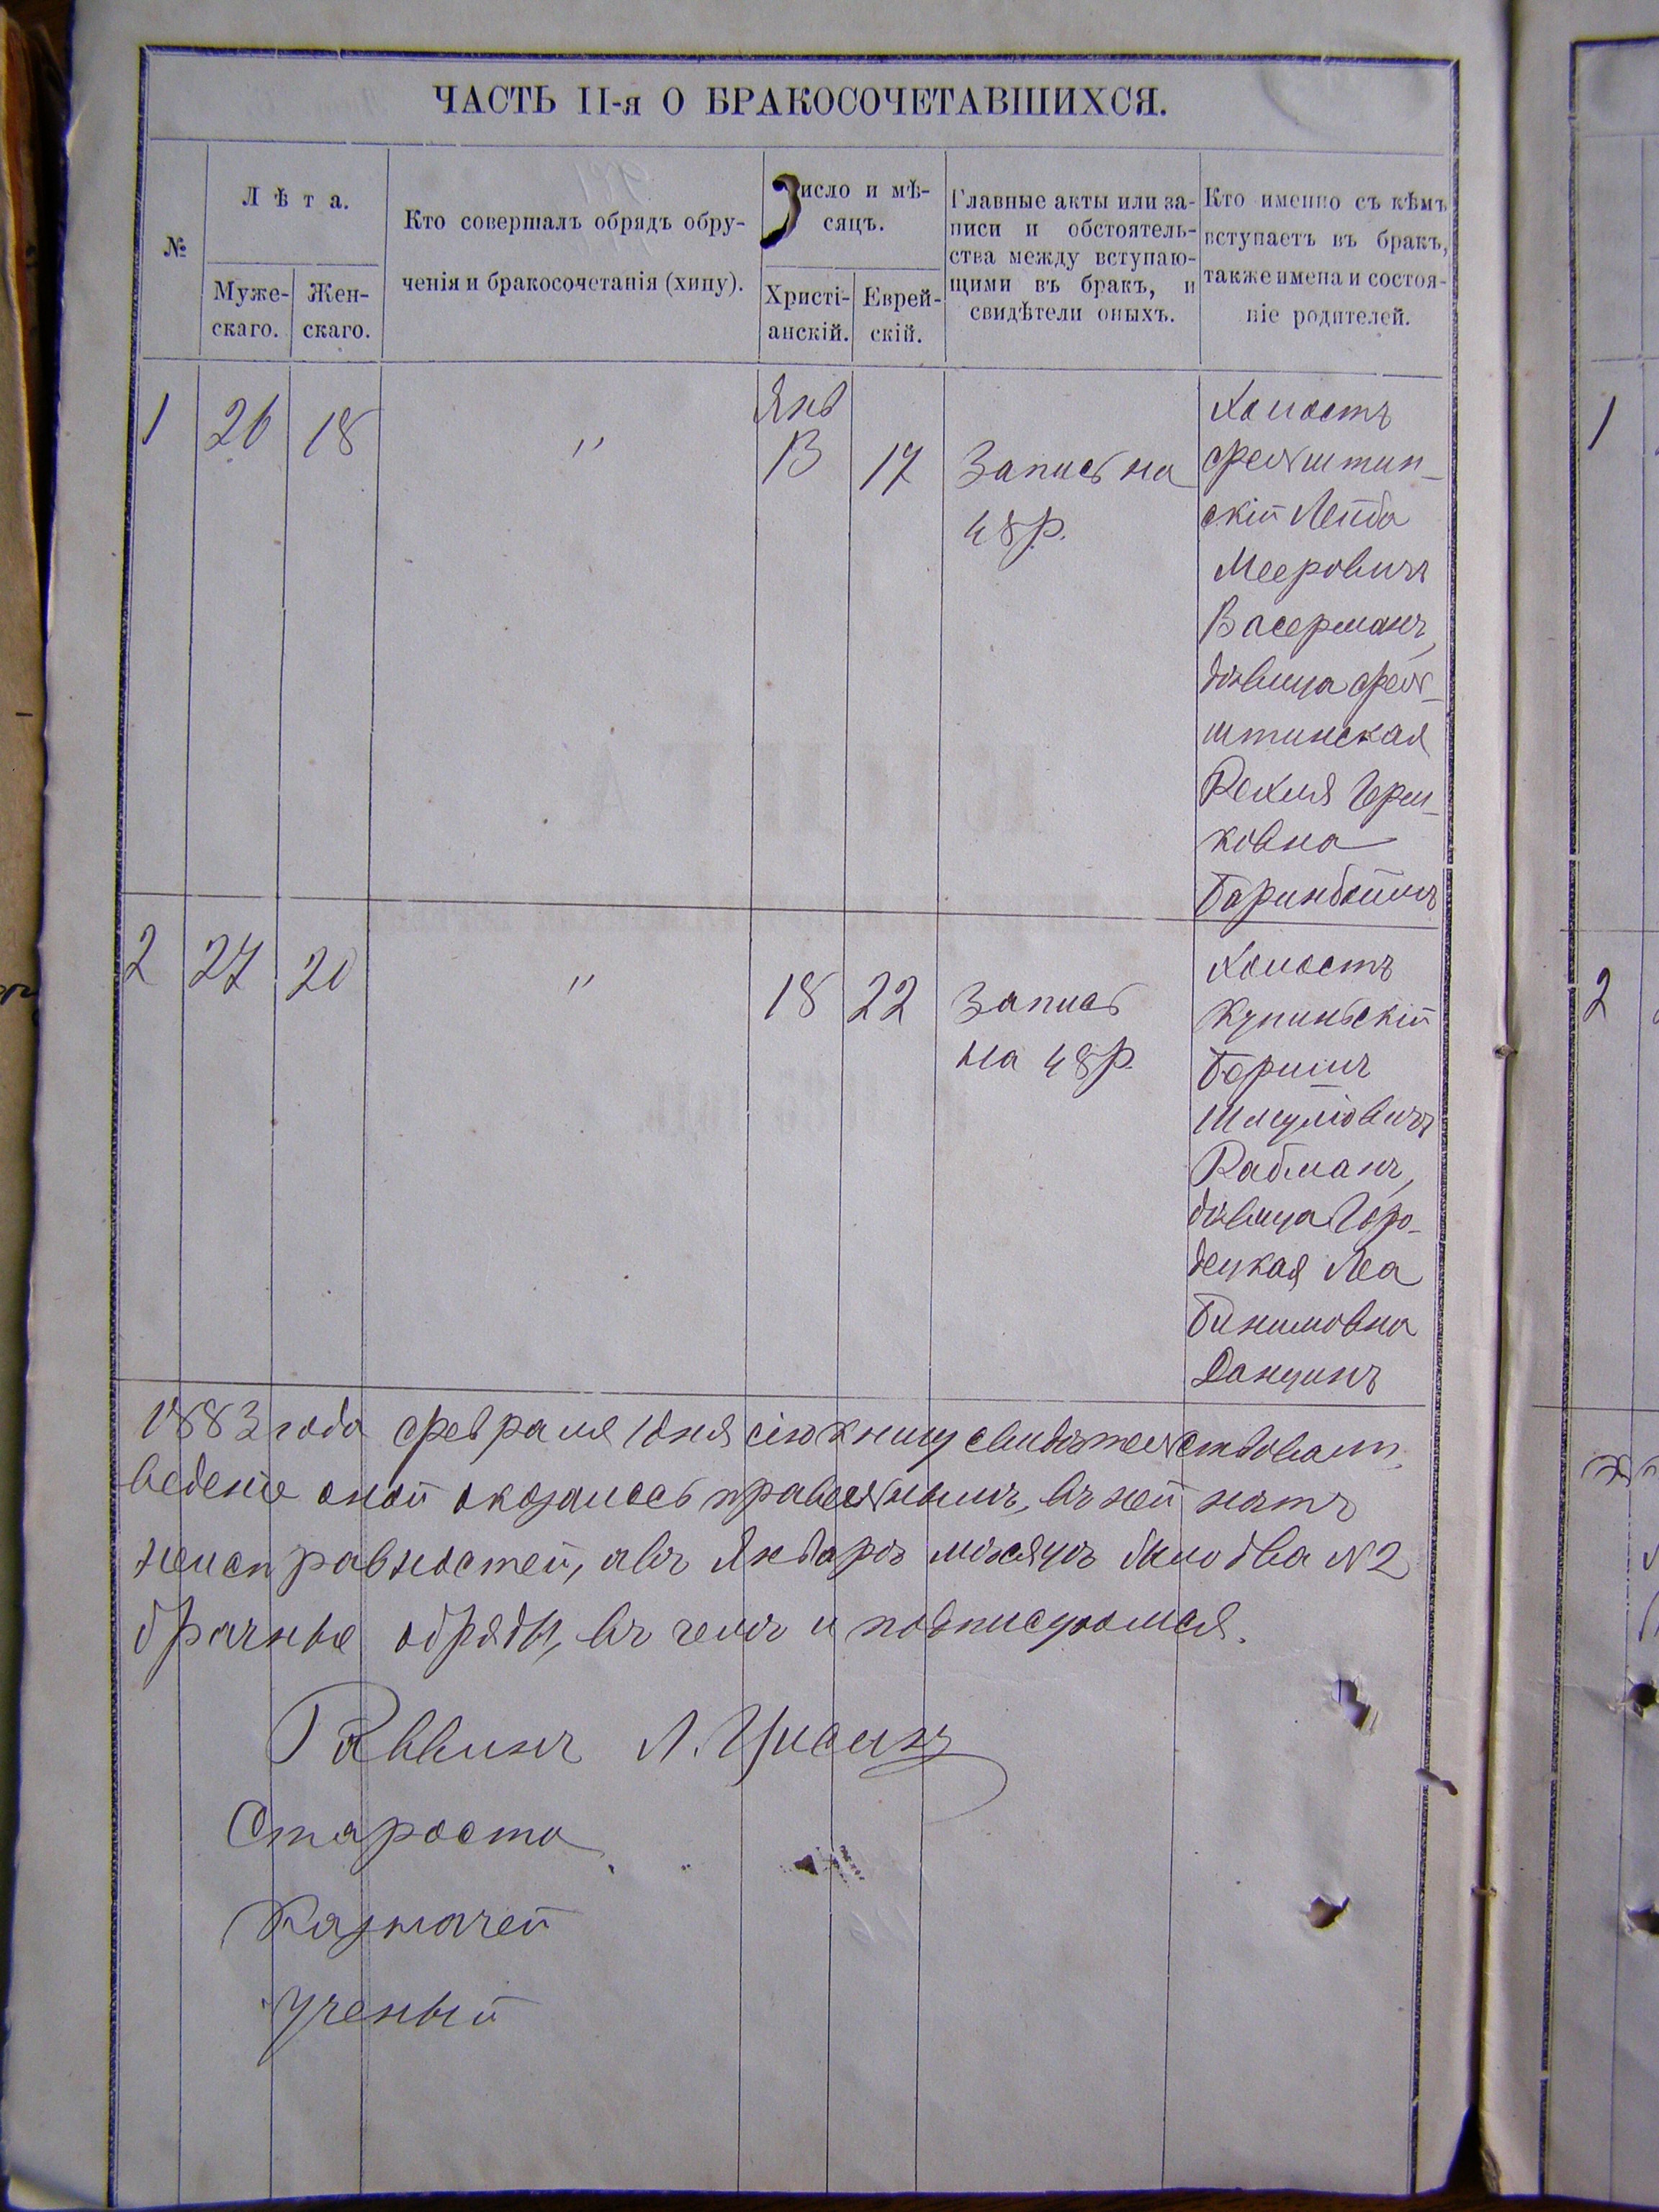 ЧАСТЬ II-я О БРАКОСОЧЕТАВШИХСЯ.
№
Лѣта.
Муже-
скаго.
Жен-
скаго.
Кто совершалъ обрядъ обру-
ченія и бракосочетанія (хипу).
Число и мѣ-
сяцъ.
Христі-
анскій.
Еврей-
скій.
Главные акты или за-
писи и обстоятель-
ства между вступаю-
щими въ бракъ, и
свидѣтели оныхъ.
Кто именно съ кѣмъ
вступаетъ въ бракъ,
также имена и состоя-
ніе родителей.
1 26 18 "
Янв
13 17
Запись на
48 р.
Холостъ
фельштин-
скій Лейба
Мееровичъ
Васерманъ,
дѣвица фель-
штинская
Рехля Герш-
ковна
2 27 20 " 18 22
Запись
на 48 р.
Холостъ
Купинскій
Боришъ
Шмулiовичъ
дѣвица Горо-
децкая Леа
Данцинъ
1883 года февраля 1 дня сію книгу свидѣтельствовали,
веденіе оной оказалось правильнымъ, въ ней нѣтъ
неисправностей, а въ Январѣ мѣсяцѣ было два №2
брачные обряды, въ чемъ и подписуюмся.
Раввинъ Л.
Староста
Казначей
Ученый
1
2